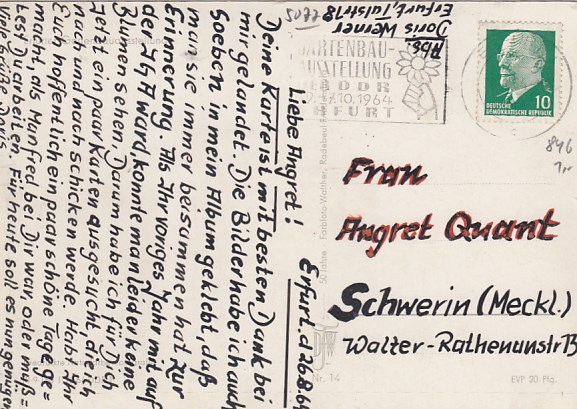 Abs.
Doris Weiner
Erfurt,
GARTENBAU-
AUSSTELLUNG
DER DDR
10.1964
ERFURT
DEUTSCHE
DEMOKRATISCHE REPUBLIK
10
846
Frau
Angret Quant
Schwerin (Meckl.)
Walter-Rathenaustr
Nr. 14
EVP 20 Pfg.
50 Jahre Farbfoto-Walther, Radebeul
Erfurt d 26.8.64
Liebe Angret!
Deine Karte ist mit besten Dank bei
mir gelandet. Die Bilder habe ich auch
soeben in mein Album geklebt, daß
man sie immer beisammen hat zur
Erinnerung. Als Ihr voriges Jahr mit auf
der Ihg A ward konnte man leider keine
Blumen sehen. Darum habe ich für Dich
Jetzt ein paar Karten ausgesucht die ich
nach und nach schicken werde. Habt Ihr
Euch hoffentlich ein paar schöne Tage ge=
macht, als Manfred bei Dir war, oder muß=
test Du arbeiten. Für heute soll es nun genügen
Viele Grüße Doris